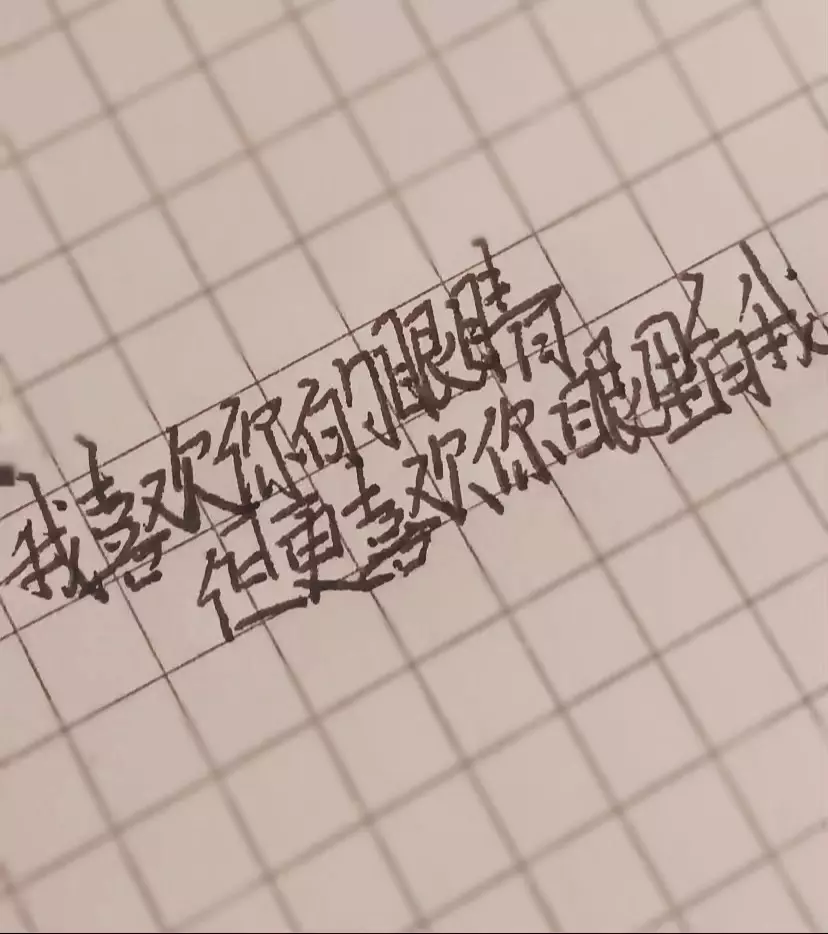 我喜欢你的眼睛
但更喜欢你眼里有我